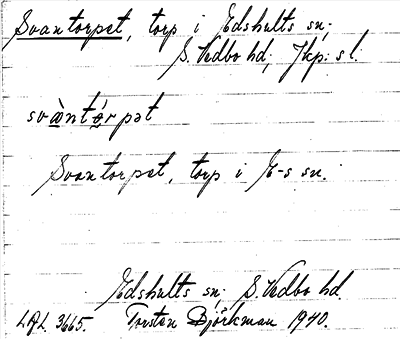 Svantorpet, torp i Edshults sn;
S. Vedbo hd, Jkp:s l.
sva̠ntɵ̠rpət
Svantorpet, torp i E-s sn.
Edshults sn; S. Vedbo hd.
L.A.L. 3665. Torsten Björkman 1940.